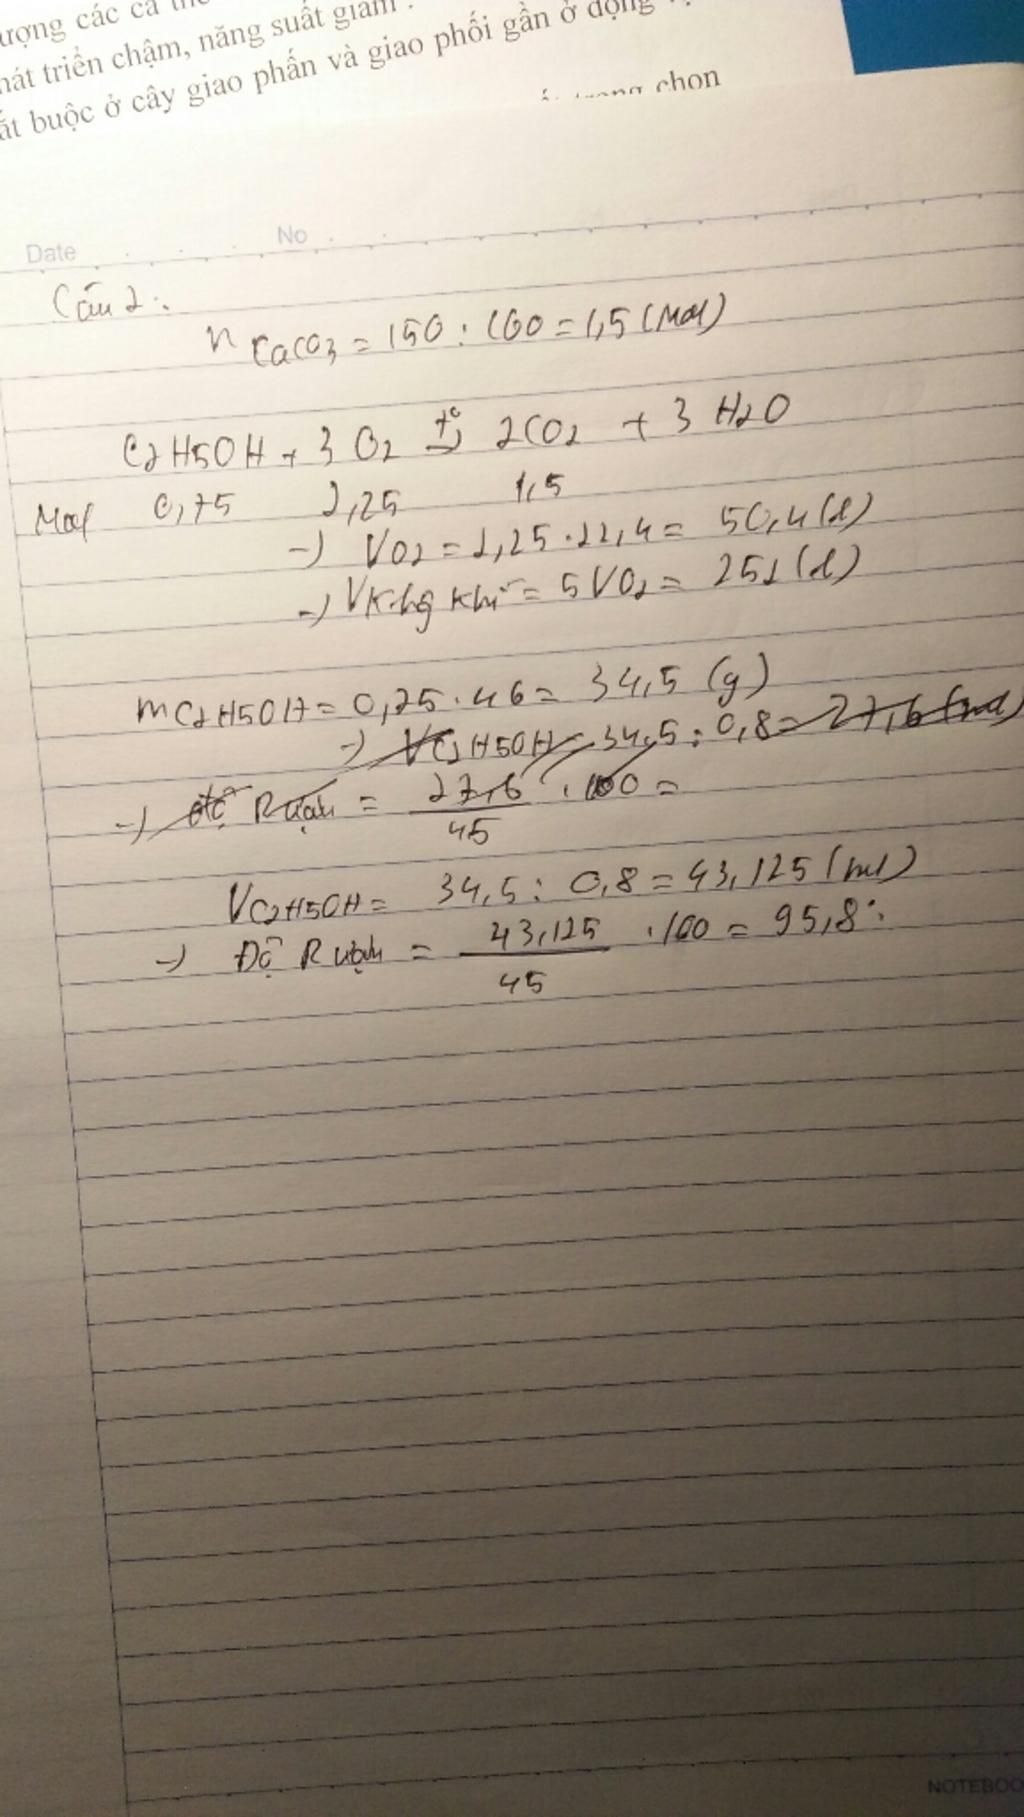 ượng các cá thể
hát triển chậm, năng suất giảm.
ắt buộc ở cây giao phấn và giao phối gần ở động
trong chọn
Date No
Câu 2:
n CaCO3 = 150 : 100 = 1,5 (Mol)
C2H5OH + 3 O2 t° → 2CO2 + 3 H2O
Mol 0,75 2,25 1,5
-) VO2 = 2,25 . 22,4 = 50,4 (l)
-) V Không khí = 5 VO2 = 252 (l)
mC2H5OH = 0,75 . 46 = 34,5 (g)
-) VC2H5OH = 34,5 : 0,8 = 27,6 (ml)
-) độ Rượu = 27,6 / 45 . 100 =
VC2H5OH = 34,5 : 0,8 = 43,125 (ml)
-) Độ Rượu = 43,125 / 45 . 100 = 95,8°.
NOTEBOO